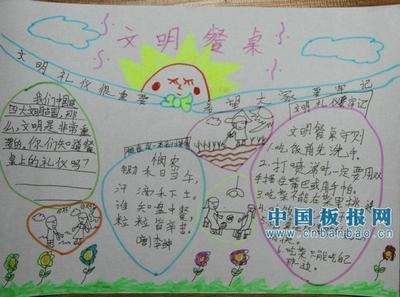 文明餐桌
文明礼仪很重要
希望大家要牢记
我们中国是
四大文明古国,那
么,文明是非常重
要的,你们知道餐
桌上的礼仪吗?
悯农
锄禾日当午
汗滴禾下土
谁知盘中餐
粒粒皆辛苦
唐 李绅
文明餐桌守则
1.吃饭前先洗手。
2.打喷嚏时一定要用双
手捂住嘴巴或用手帕。
3.吃菜不能在菜里挑
吃菜只能吃自己
那一边。
中国板报网
www.cnbanbao.cn